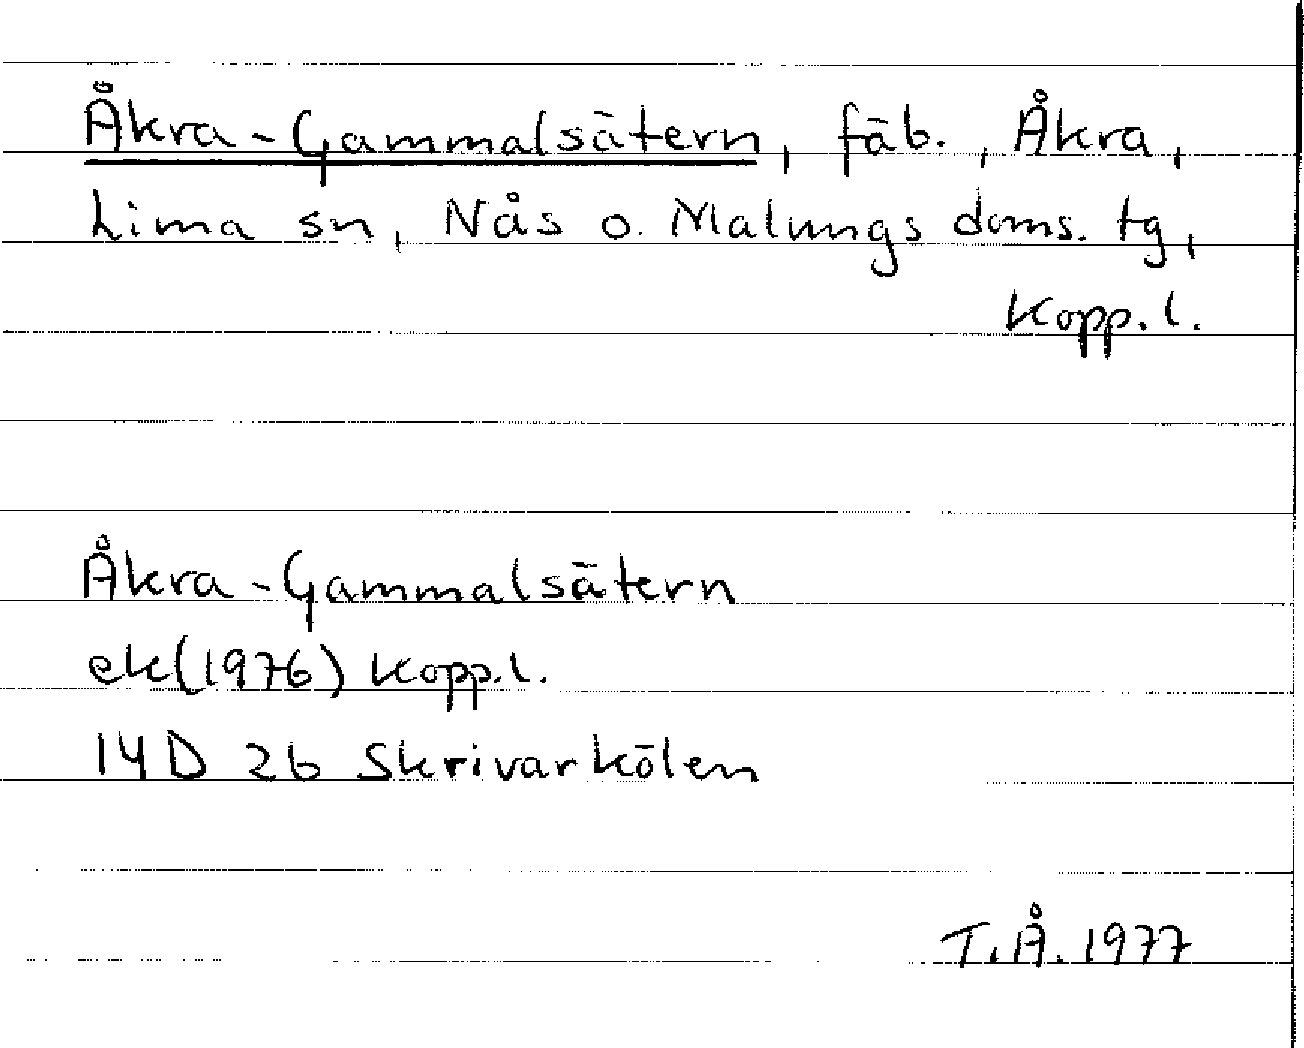 Åkra-Gammalsätern, fäb., Åkra,
Lima sn, Nås o. Malungs doms. tg,
Kopp. l.
Åkra-Gammalsätern
ek(1976) Kopp.l.
14D 2b Skrivarkölen
T.Å. 1977